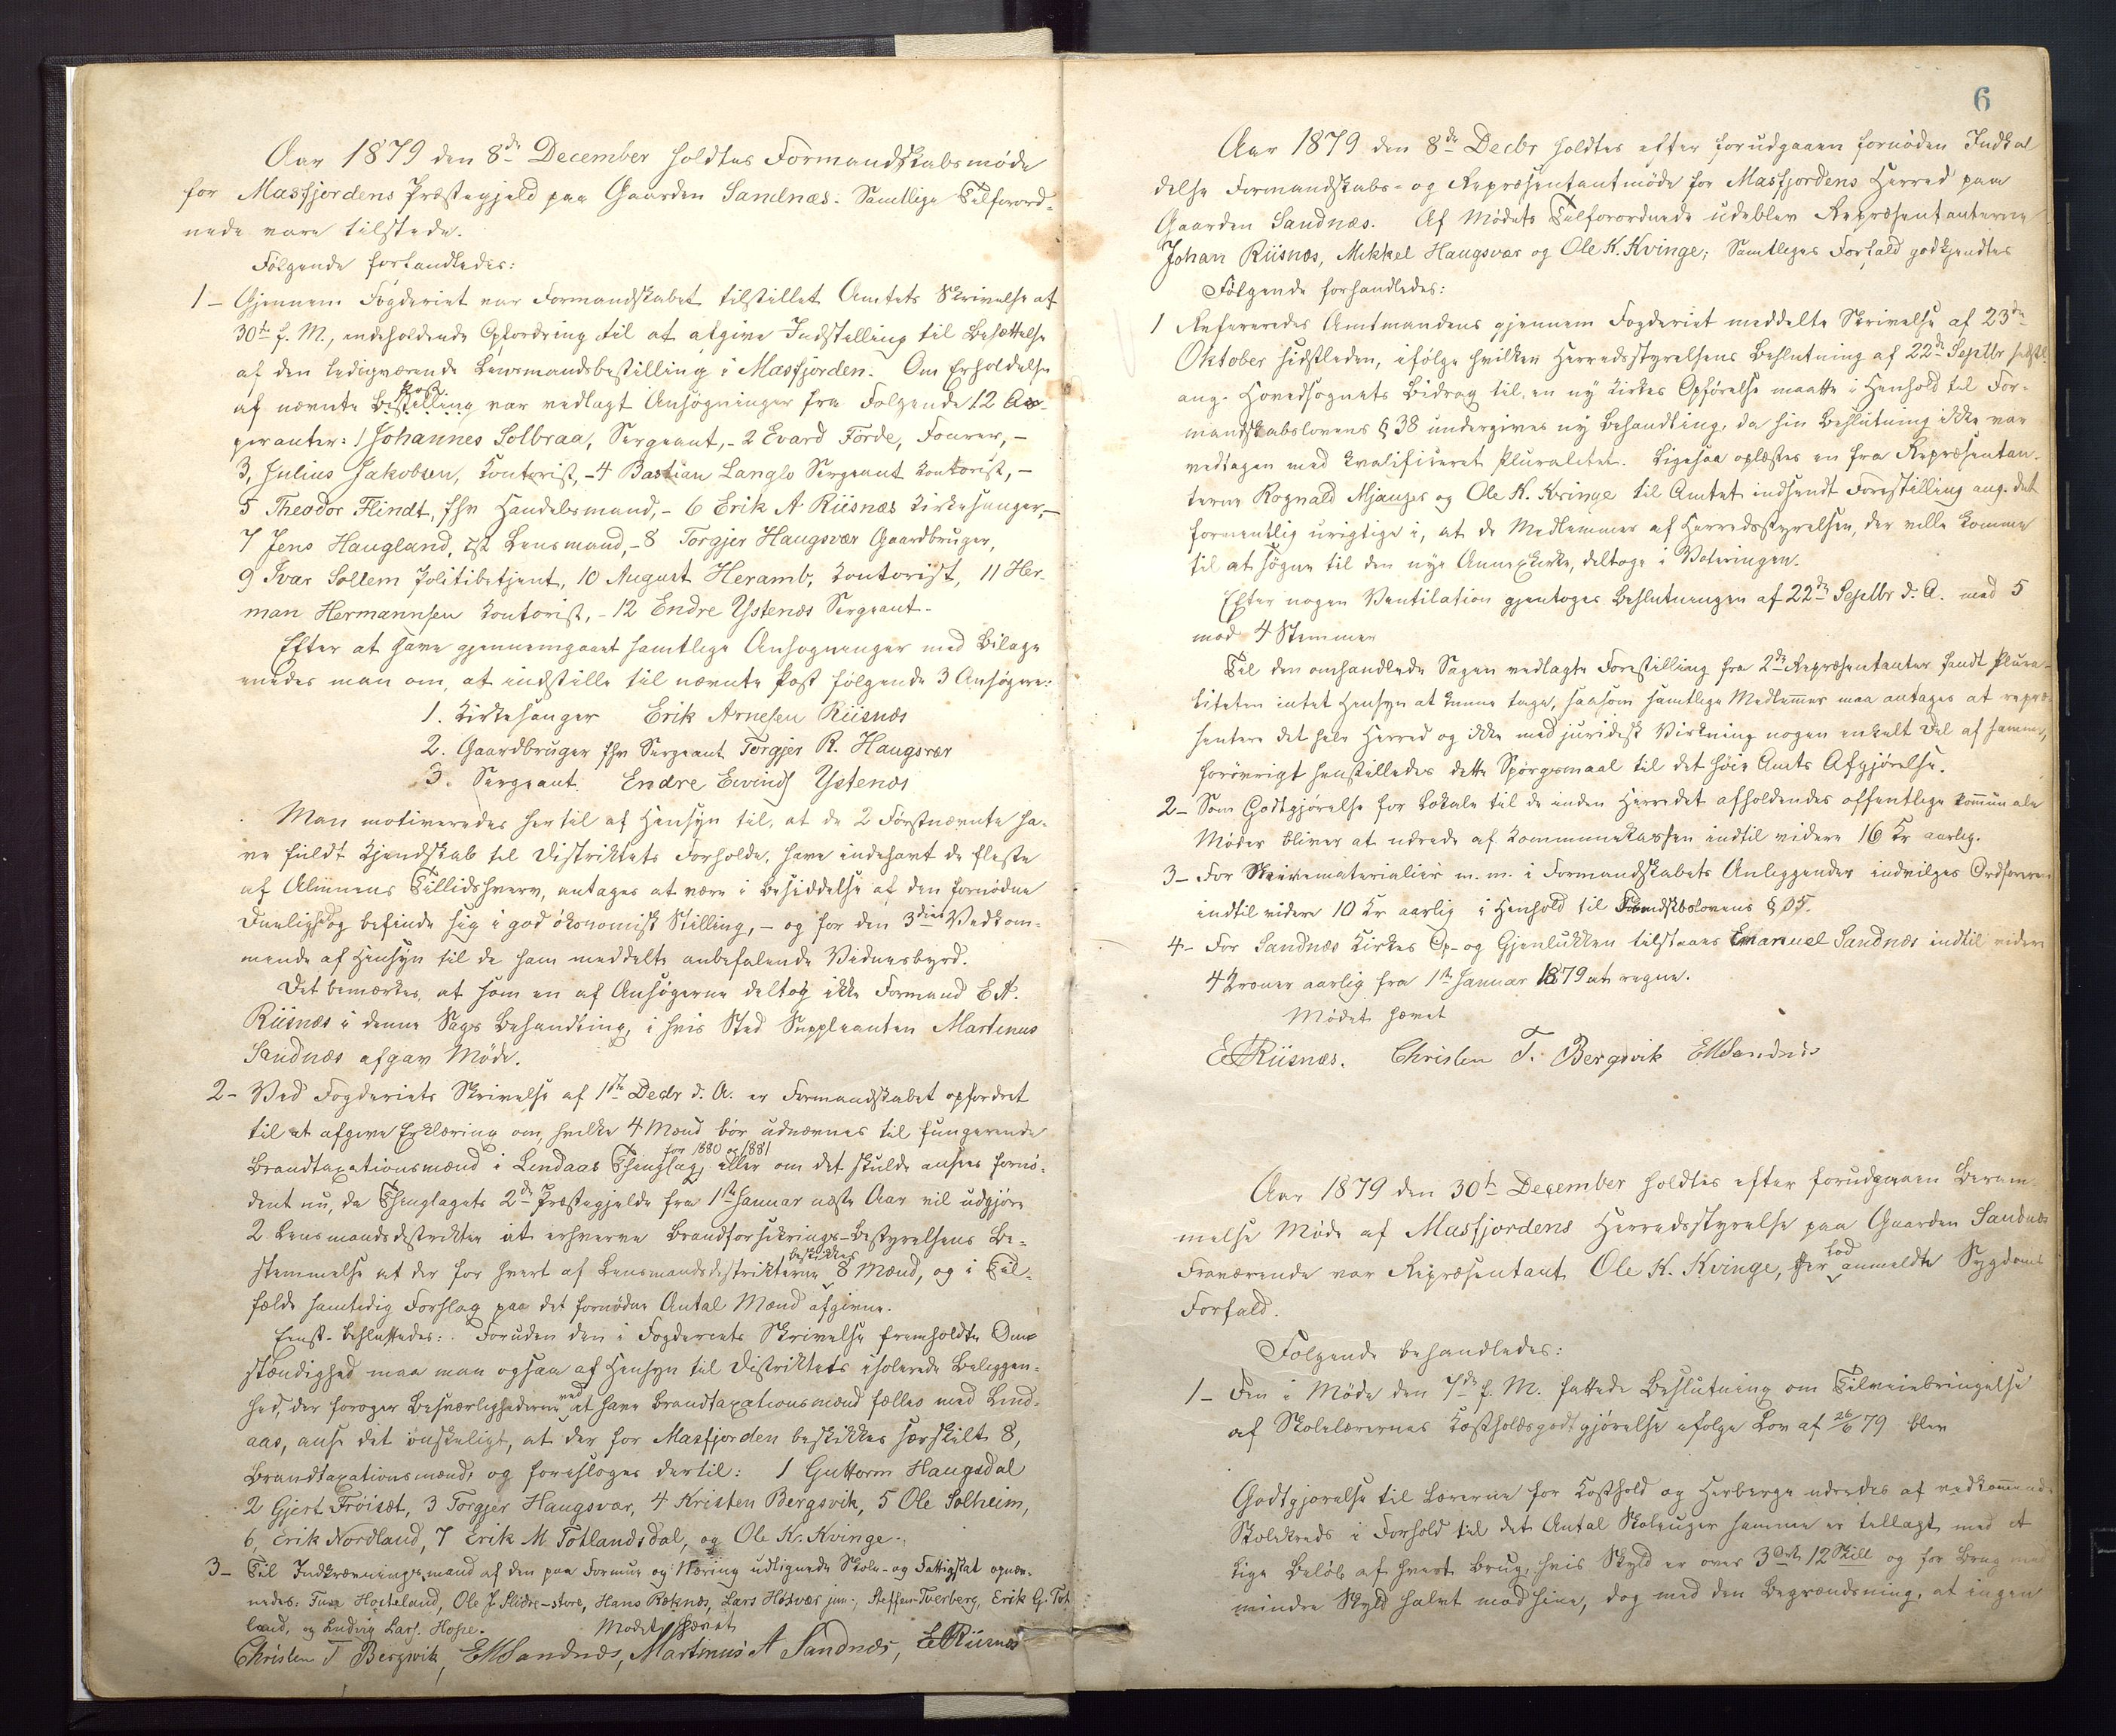 Aar 1879 den 8de December holdtes Formandskabsmöde
for Masfjordens Præstegjeld paa Gaarden Sandnæs. Samtlige Tilforord-
nede vare tilstede.
Fölgende forhandledes:
1 - Gjennem Fogderiet var Formandskabet tilstillet Amtets Skrivelse af
30te f. M., indeholdende Opfordring til at afgive Indstilling til Besættelse
af den ledigværende Lensmandsbestilling i Masfjorden. Om Erholdelse
af nævnte Post var vedlagt Ansögninger fra Følgende 12 As-
peranter: 1 Johannes Solbraa, Sergeant, - 2 Evard Förde, Fourer, -
3, Julius Jakobsen, Kontorist, - 4 Bastian Langlo Sergeant Kontorist, -
5 Theodor Flindt, fhv Handelsmand, - 6 Erik A Riisnæs Kirkesanger, -
7 Jens Haugland, Lensmand, - 8 Torgjer Haugsvær Gaardbruger,
9 Ivar Soltem Politibetjent, 10 August Heramb, Kontorist, 11 Her-
man Hermannsen Kontorist, - 12 Endre Ystenæs Sergeant -
Efter at have gjennemgaaet samtlige Ansøgninger med Bilage
enedes man om, at indstille til nævnte Post følgende 3 Ansögere:
1. Kirkesanger Erik Arnesen Riisnæs
2. Gaardbruger fhv Sergeant Torgjer R. Haugsvær
3. Sergeant Endre Eivinds Ystenæs
Man motiveredes hertil af Hensyn til, at de 2 Förstnævnte ha-
ve fuldt Kjendskab til Distriktets Forholde, have indehavt de fleste
af Almeens Tillidshverv, antages at være i Besiddelse af den fornødne
Duelighed og befinde sig i god ökonomisk Stilling, - og for den 3dies Vedkom-
mende af Hensyn til de ham meddelte anbefalende Vidnesbyrd.
Det bemærkes, at som en af Ansögerne deltog ikke Formand E A.
Riisnæs i denne Sags Behandling, i hvis Sted Suppleanten Martinus
Sandnæs afgav Möde.
2 - Ved Fogderiets Skrivelse af 1ste Decbr d. A. er Formandskabet opfordret
til at afgive Erklæring om, hvilke 4 Mænd bör udnævnes til fungerende
Brandtaxationsmænd i Lindaas Thinglag for 1880 og 1881, eller om det skulde ansees fornö-
dent nu, da Thinglagets 2det Præstegjelde fra 1ste Januar næste Aar vil udgjöre
2 Lensmandsdistrikter at erhverve Brandforsikrings-Bestyrelsens Be-
stemmelse at der for hvert af Lensmandsdistrikterne beskikkes 8 Mænd, og i Til-
fælde samtidig Forslag paa det fornødne Antal Mænd afgivne.
Eenst. besluttedes: Foruden den i Fogderiets Skrivelse fremholdte Om-
stændighed maa man ogsaa af Hensyn til Distriktets isolerede Beliggen-
hed, der foröger Besværlighederne ved at have Brandtaxationsmænd fælles med Lind-
aas, anse det önskeligt, at der for Masfjorden beskikkes særskilt 8,
Brandtaxationsmænd, og foresloges dertil: 1 Guttorm Haugsdal
2 Gjert Fröisæt, 3 Torgjer Haugsvær, 4 Kristen Bergsvik, 5 Ole Solheim,
6, Erik Nordland, 7 Erik M. Totlandsdal, og Ole K. Kvinge.
3 - Til Indkrævningsmænd af den paa Formue og Næring udlignede Skole- og Fattigskat opnæv-
nedes: Ture Hosteland, Ole J. Slidre-store, Hans Reknæs, Lars Höivær jun., Steffen Tverberg, Erik G. Tot
land, og Ludvig Lars. Hope. Mödet hævet
Christen T Bergsvik, EMSandnæs, Martinus A Sandnæs, EARiisnæs
6
Aar 1879 den 8de Decbr holdtes efter forudgaaen fornöden Indkal
delse Formandskabs- og Repræsentantmöde for Masfjordens Herred paa
Gaarden Sandnæs. Af Mödets Tilforordnede udeblev Repræsentanterne
Johan Riisnæs, Mikkel Haugsvær og Ole K. Kvinge; Samtliges Forfald godkjendtes
Fölgende forhandledes:
1 Refereredes Amtmandens gjennem Fogderiet meddelte Skrivelse af 23de
Oktober sidstleden, ifölge hvilken Herredsstyrelsens Beslutning af 22de Septbr sidstl.
ang. Hovedsognets Bidrag til en ny Kirkes Opförelse maatte i Henhold til For-
mandskabslovens § 38 undergives ny Behandling, da hin Beslutning ikke var
vedtagen med kvalificeret Pluralitet. Ligesaa oplæstes en fra Repræsentan-
terne Rognald Mjanger og Ole K. Kvinge til Amtet indsendt Forestilling ang. det
formentlig urigtige i, at de Medlemmer af Herredsstyrelsen, der ville komme
til at sögne til den nye Annexkirke, deltage i Voteringen.
Efter nogen Ventilation gjentoges Beslutningen af 22de Septbr d. A. med 5
mod 4 Stemmer
Til den omhandlede Sagen vedlagte Forestilling fra 2de Repræsentanter fandt Plura-
liteten intet Hensyn at kunne tage, saasom samtlige Medlemmer maa antages at repræ-
sentere det hele Herred og ikke med juridisk Virkning nogen enkelt Del af samme,
forövrigt henstilledes dette Spörgsmaal til det höie Amts Afgjörelse.
2 - Som Godtgjörelse for Lokale til de inden Herredet afholdendes offentlige kommunale
Möder bliver at udrede af Kommunekassen indtil videre 16 Kr aarlig.
3 - For Skrivematerialier m. m. i Formandskabets Anleggender indvilges Ordføreren
indtil videre 10 Kr aarlig i Henhold til
4 - For Sandnæs Kirkes Op- og Gjenlukken tilstaaes Emanuel Sandnæs indtil videre
4 Kroner aarlig fra 1ste Januar 1879 at regne.
Mödet hævet
EARiisnæs. Christen T. Bergsvik EMSandnæs
Aar 1879 den 30te December holdtes efter forudgaaen Beram-
melse Möde af Masfjordens Herredsstyrelse paa Gaarden Sandnæs
Fraværende var Repræsentant Ole K. Kvinge, anmeldte Sygdoms
Forfald.
Fölgende behandledes:
1 - Den i Möde den 7de f. M. fattede Beslutning om Tilveiebringelse
af Skolelærernes Kostholdsgodtgjörelse ifölge Lov af 26/6 79 blev
Godtgjörelse til Lærerne for Kosthold og Herberge udredes af vedkommende
Skolekreds i Forhold til det Antal Skoleuger samme er tillagt med et
lige Belöb af hvert Brug, hvis Skyld er over 3 Ort 12 Skill og for Brug med
mindre Skyld halvt mod hine, dog med den Begrændsning, at ingen